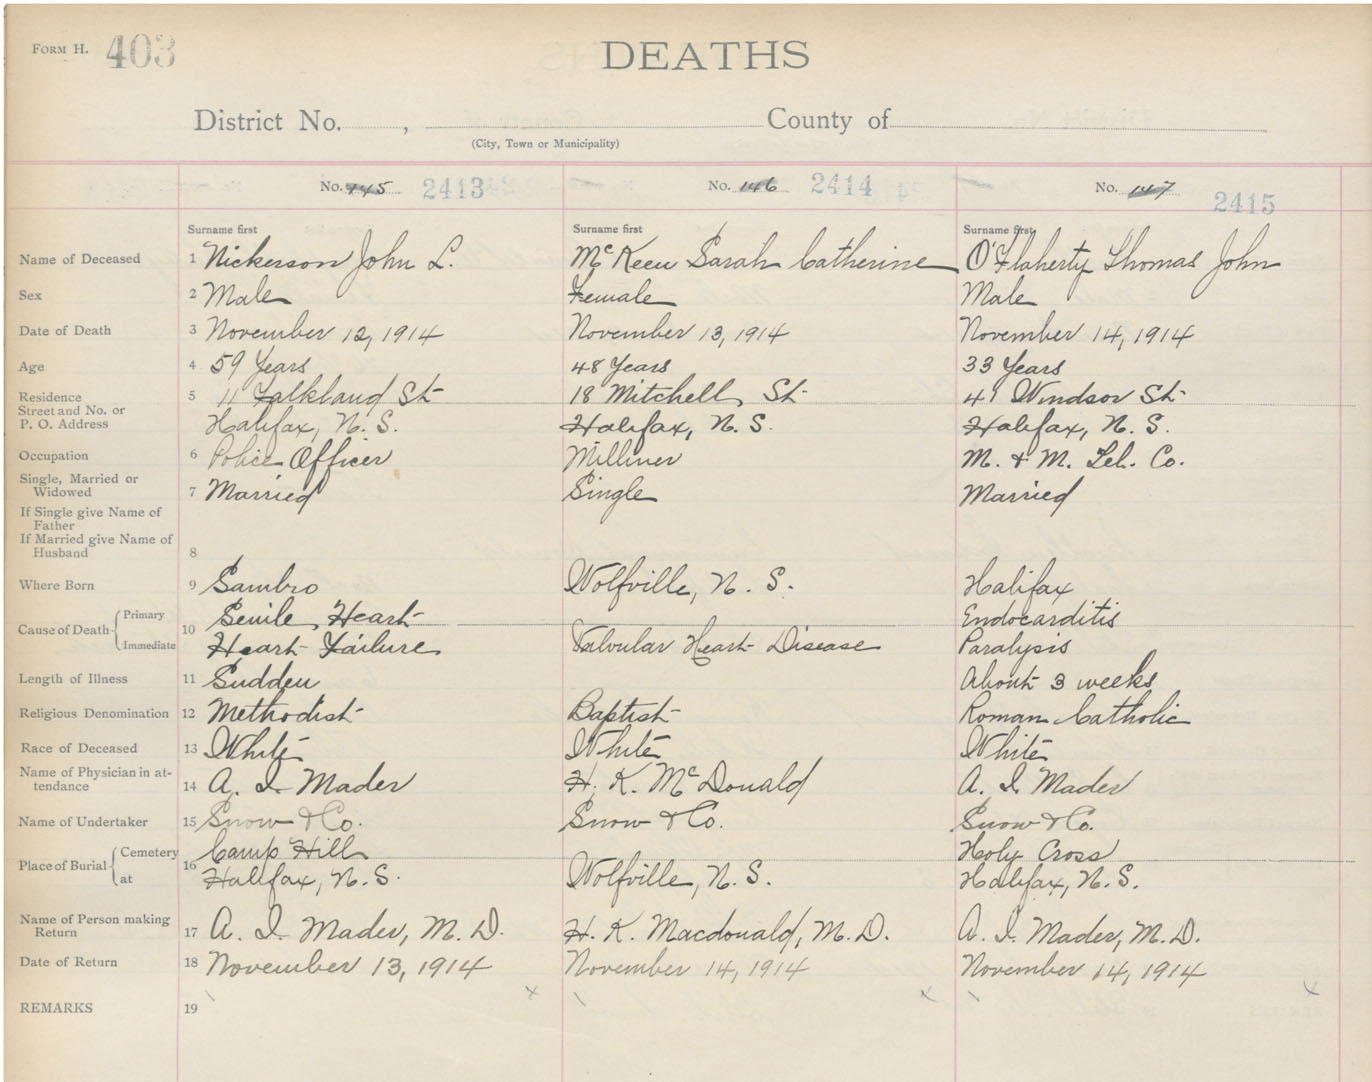 FORM H. 403
DEATHS
District No. , County of
(City, Town or Municipality)
No. 145 2413 No. 146 2414 No. 147 2415
Surname first Surname first Surname first
Name of Deceased 1 Nickerson John L. McKeen Sarah Catherine O'Flaherty Thomas John
Sex 2 Male Female Male
Date of Death 3 November 12, 1914 November 13, 1914 November 14, 1914
Age 4 59 Years 48 Years 33 Years
Residence 5 11 Falkland St 18 Mitchell St 41 Windsor St
Street and No. or
P. O. Address Halifax, N. S. Halifax, N. S. Halifax, N. S.
Occupation 6 Police Officer Milliner M. & M. Tel. Co.
Single, Married or
Widowed 7 Married Single Married
If Single give Name of
Father
If Married give Name of
Husband 8
Where Born 9 Sambro Wolfville, N. S. Halifax
Cause of Death Primary 10 Senile Heart Endocarditis
Immediate Heart Failure Valvular Heart Disease Paralysis
Length of Illness 11 Sudden About 3 weeks
Religious Denomination 12 Methodist Baptist Roman Catholic
Race of Deceased 13 White White White
Name of Physician in at-
tendance 14 A. I. Mader H. K. McDonald A. I. Mader
Name of Undertaker 15 Snow & Co. Snow & Co. Snow & Co.
Place of Burial Cemetery 16 Camp Hill Holy Cross
at Halifax, N. S. Wolfville, N. S. Halifax, N. S.
Name of Person making
Return 17 A. I. Mader, M. D. H. K. Macdonald, M. D. A. I. Mader, M. D.
Date of Return 18 November 13, 1914 November 14, 1914 November 14, 1914
REMARKS 19